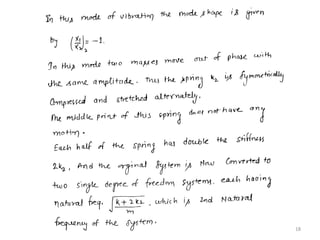 In this mode of vibration the mode shape is given
by (x₁/x₂)₂ = -1.
In this mode two masses move out of phase with
the same amplitude. Thus the spring k₂ is symmetrically
Compressed and stretched alternately.
The middle print of this spring does not have any
motion.
Each half of the spring has double the stiffness
2k₂, And the orginal system is Now Converted to
two single degree of freedom system. each having
natural freq. √(k+2k₂/m), which is 2nd Natural
frequency of the system.
18